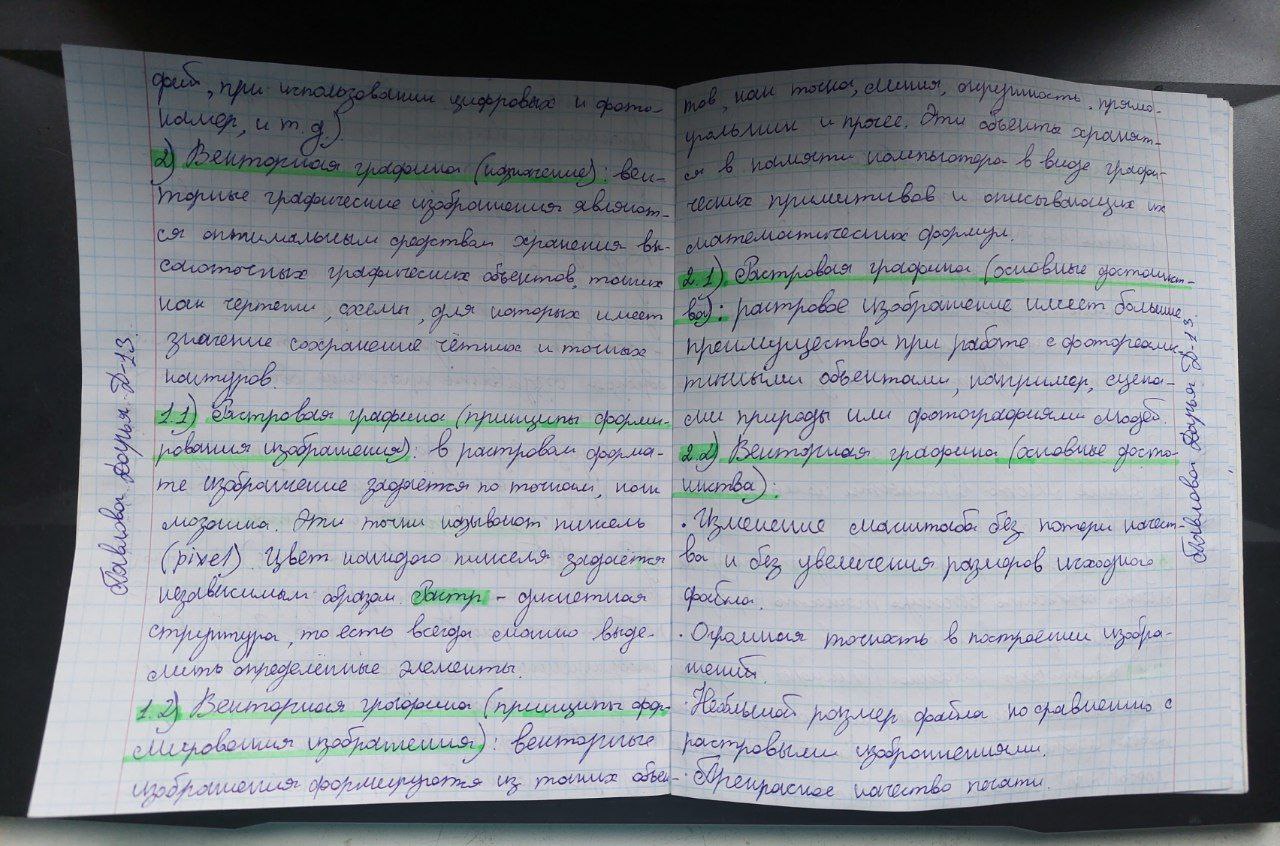 фий, при использовании цифровых и фото-
камер, и т.д.)
2) Векторная графика (назначение): век-
торные графические изображения являют-
ся оптимальным средством хранения вы-
сокоточных графических объектов, таких
как чертежи, схемы, для которых имеет
значение сохранение чётких и точных
контуров.
1.1) Растровая графика (принципы форми-
рования изображения): в растровом форма-
те изображение задаётся по точкам, как
мозаика. Эти точки называют пиксель
(pixel). Цвет каждого пикселя задаётся
независимым образом. Растр - дискетная
структура, то есть всегда можно выде-
лить определённые элементы.
1.2) Векторная графика (принципы фор-
мирования изображения): векторные
изображения формируются из таких объек-
Павлова Дарья. Д-13.
тов, как точка, линия, окружность, прямо-
угольник и прочее. Эти объекты хранят-
ся в памяти компьютера в виде графи-
ческих примитивов и описывающих их
математических формул.
2.1) Растровая графика (основные достоинст-
ва): растровое изображение имеет большие
преимущества при работе с фотореалис-
тичными объектами, например, сцена-
ми природы или фотографиями людей.
2.2) Векторная графика (основные досто-
инства):
· Изменение масштаба без потери качест-
ва и без увеличения размеров исходного
файла.
· Огромная точность в построении изобра-
жений.
· Небольшой размер файла по сравнению с
растровыми изображениями.
· Прекрасное качество печати.
Павлова Дарья Д-13.